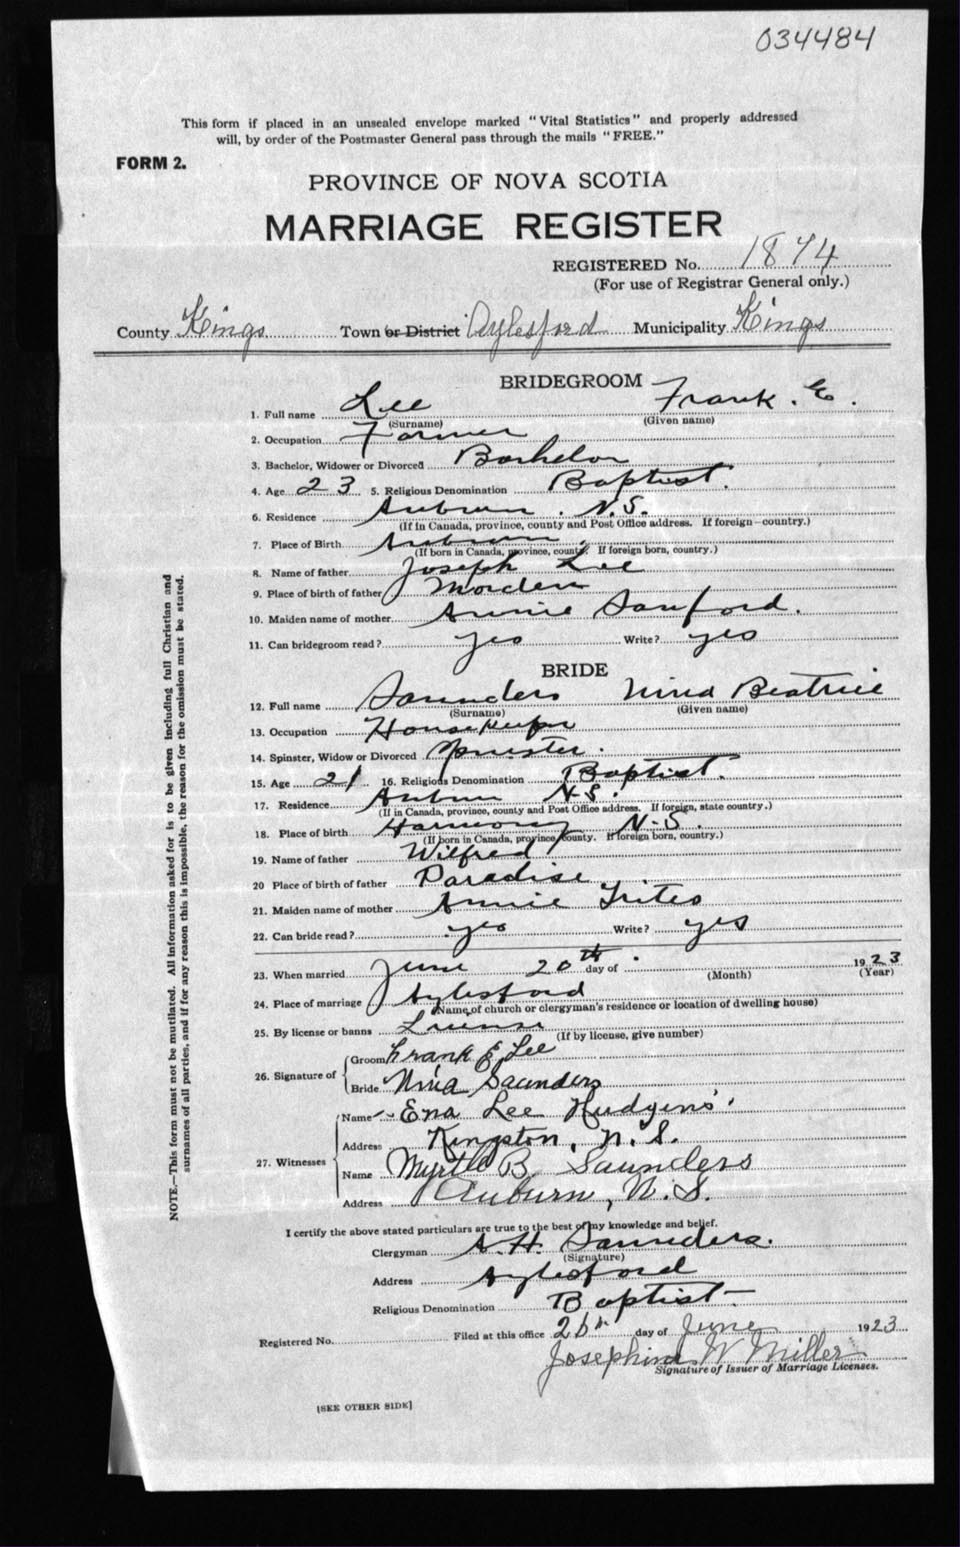 034484
This form if placed in an unsealed envelope marked "Vital Statistics" and properly addressed
will, by order of the Postmaster General pass through the mails "FREE."
FORM 2.
PROVINCE OF NOVA SCOTIA
MARRIAGE REGISTER
REGISTERED No. 1874
(For use of Registrar General only.)
County Kings Town or District Aylesford Municipality Kings
BRIDEGROOM
1. Full name Lee Frank. E.
(Surname) (Given name)
2. Occupation Farmer
3. Bachelor, Widower or Divorced Bachelor
4. Age 23 5. Religious Denomination Baptist.
6. Residence Auburn. N.S.
(If in Canada, province, county and Post Office address. If foreign—country.)
7. Place of Birth Auburn.
(If born in Canada, province, county. If foreign born, country.)
8. Name of father Joseph Lee
9. Place of birth of father Morden
10. Maiden name of mother Annie Sanford.
11. Can bridegroom read? yes Write? yes
BRIDE
12. Full name Saunders Nina Beatrice
(Surname) (Given name)
13. Occupation Housekeeper
14. Spinster, Widow or Divorced Spinster.
15. Age 21 16. Religious Denomination Baptist.
17. Residence Auburn N.S.
(If in Canada, province, county and Post Office address. If foreign, state country.)
18. Place of birth Harmony N.S.
(If born in Canada, province, county. If foreign born, country.)
19. Name of father Wilfred
20 Place of birth of father Paradise
21. Maiden name of mother Annie Trites
22. Can bride read? yes Write? yes
23. When married June 20th day of (Month) 1923 (Year)
24. Place of marriage Aylesford
(Name of church or clergyman's residence or location of dwelling house)
25. By license or banns License
(If by license, give number)
26. Signature of Groom Frank E Lee
Bride Nina Saunders
27. Witnesses Name Ena Lee Hudgins.
Address Kingston, N.S.
Name Myrtle B. Saunders
Address Auburn, N.S.
I certify the above stated particulars are true to the best of my knowledge and belief.
Clergyman A.H. Saunders.
(Signature)
Address Aylesford
Religious Denomination Baptist
Registered No. Filed at this office 26th day of June 1923
Josephine W Miller
Signature of Issuer of Marriage Licenses.
[SEE OTHER SIDE]
NOTE.—This form must not be mutilated. All information asked for is to be given including full Christian and
surnames of all parties, and if for any reason this is impossible, the reason for the omission must be stated.